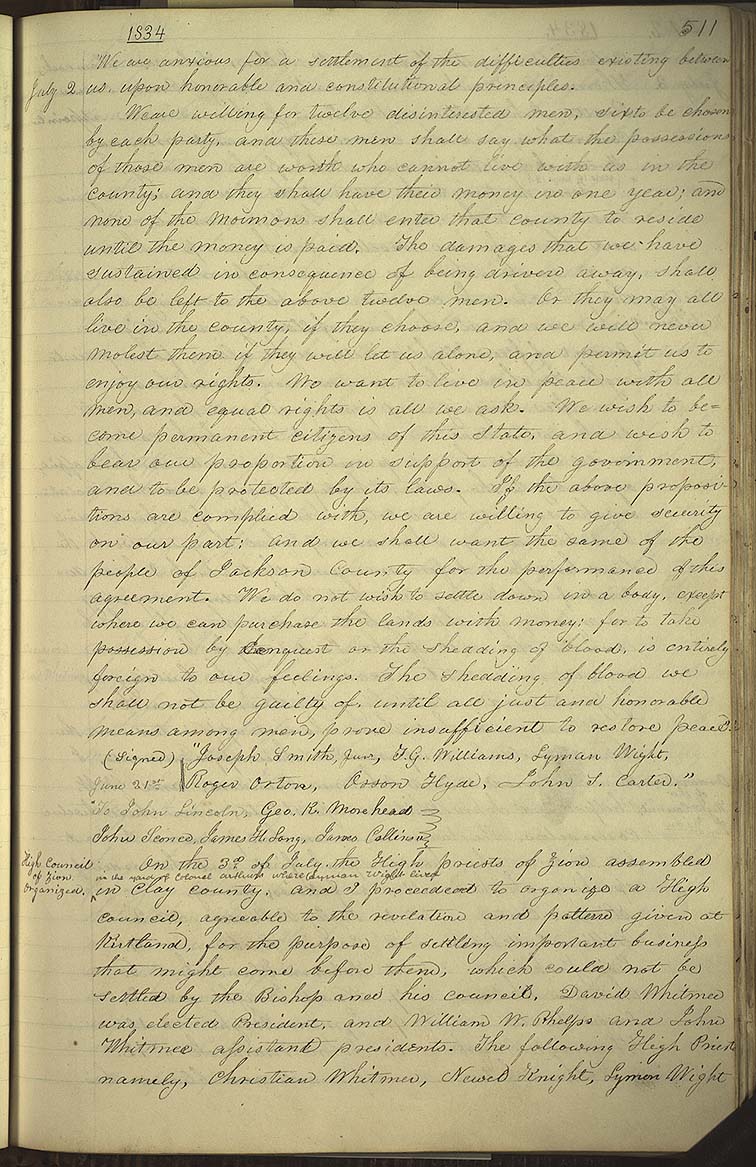 1834
511
"We are anxious for a settlement of the difficulties existing between
July 2 us, upon honorable and constitutional principles.
We are willing for twelve desinterested men, six to be chosen
by each party, and these men shall say what the possessions
of those men are worth who cannot live with us in the
county; and they shall have their money in one year; and
none of the Mormons shall enter that county to reside
until the money is paid. The damages that we have
sustained in consequence of being driven away, shall
also be left to the above twelve men. Or they may all
live in the county, if they choose, and we will never
molest them if they will let us alone, and permit us to
enjoy our rights. We want to live in peace with all
men, and equal rights is all we ask. We wish to be=
come permanent citizens of this State, and wish to
bear our proportion in support of the government,
and to be protected by its laws. If the above proposi-
tions are complied with, we are willing to give security
on our part; and we shall want the same of the
people of Jackson County for the performance of this
agreement. We do not wish to settle down in a body, except
where we can purchase the lands with money: for to take
possession by Conquest or the shedding of blood, is entirely
foreign to our feelings. The shedding of blood we
shall not be guilty of, until all just and honorable
means among men, prove insufficient to restore peace."
(Signed) "Joseph Smith, Junr, F. G. Williams, Lyman Wight,
June 21st Roger Orton, Orson Hyde, John S. Carter."
"To John Lincoln, Geo. R. Morehead
John Sconce, James H. Long, James Collins"
High Council On the 3d of July, the High priests of Zion assembled
of Zion in the yard of Colonel Arthurs where Lyman Wight lived
organized. in Clay county, and I proceeded to organize a High
council, agreeable to the revelation and pattern given at
Kirtland, for the purpose of settling important business
that might come before them, which could not be
settled by the Bishop and his council. David Whitmer
was elected President, and William W. Phelps and John
Whitmer assistant presidents. The following High Priests
namely, Christian Whitmer, Newel Knight, Lyman Wight